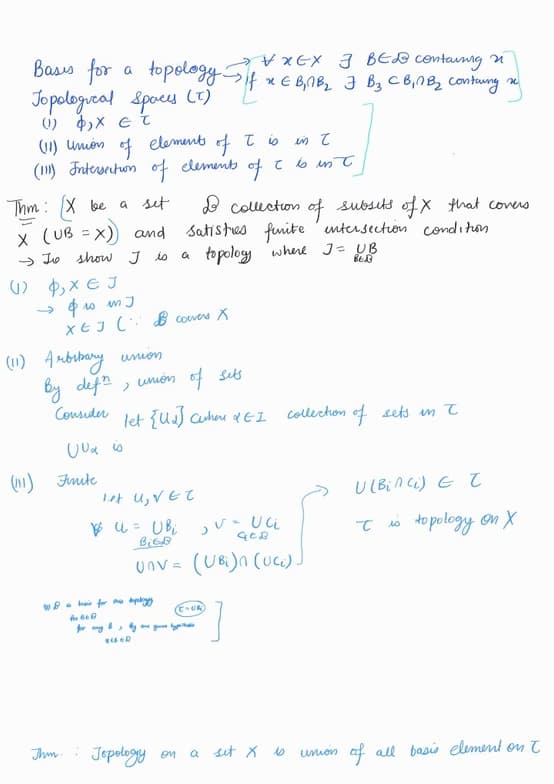 Basis for a topology → ∀ x ∈ X ∃ B ∈ ℬ containing x
→ If x ∈ B₁∩B₂ ∃ B₃ ⊂ B₁∩B₂ containing x
Topological Spaces (τ)
(i) ϕ, X ∈ τ
(ii) Union of elements of τ is in τ
(iii) Intersection of elements of τ is in τ
Thm: X be a set ℬ collection of subsets of X that covers
X (∪B = X) and satisfies finite intersection condition
→ To show J is a topology where J = ∪B
B∈ℬ
(i) ϕ, X ∈ J
→ ϕ is in J
X ∈ J (∵ ℬ covers X
(ii) Arbitrary union
By defⁿ, union of sets
Consider let {Uα} where α ∈ I collection of sets in τ
∪Uα is
(iii) Finite
let U, V ∈ τ
U = ∪Bi , V = ∪Ci
Bi∈ℬ Ci∈ℬ
U∩V = (∪Bi)∩(∪Ci)
∪(Bi∩Ci) ∈ τ
τ is topology on X
ℬ a basis for this topology
for any B, By our given hypothesis
Thm: Topology on a set X is union of all basis element on τ